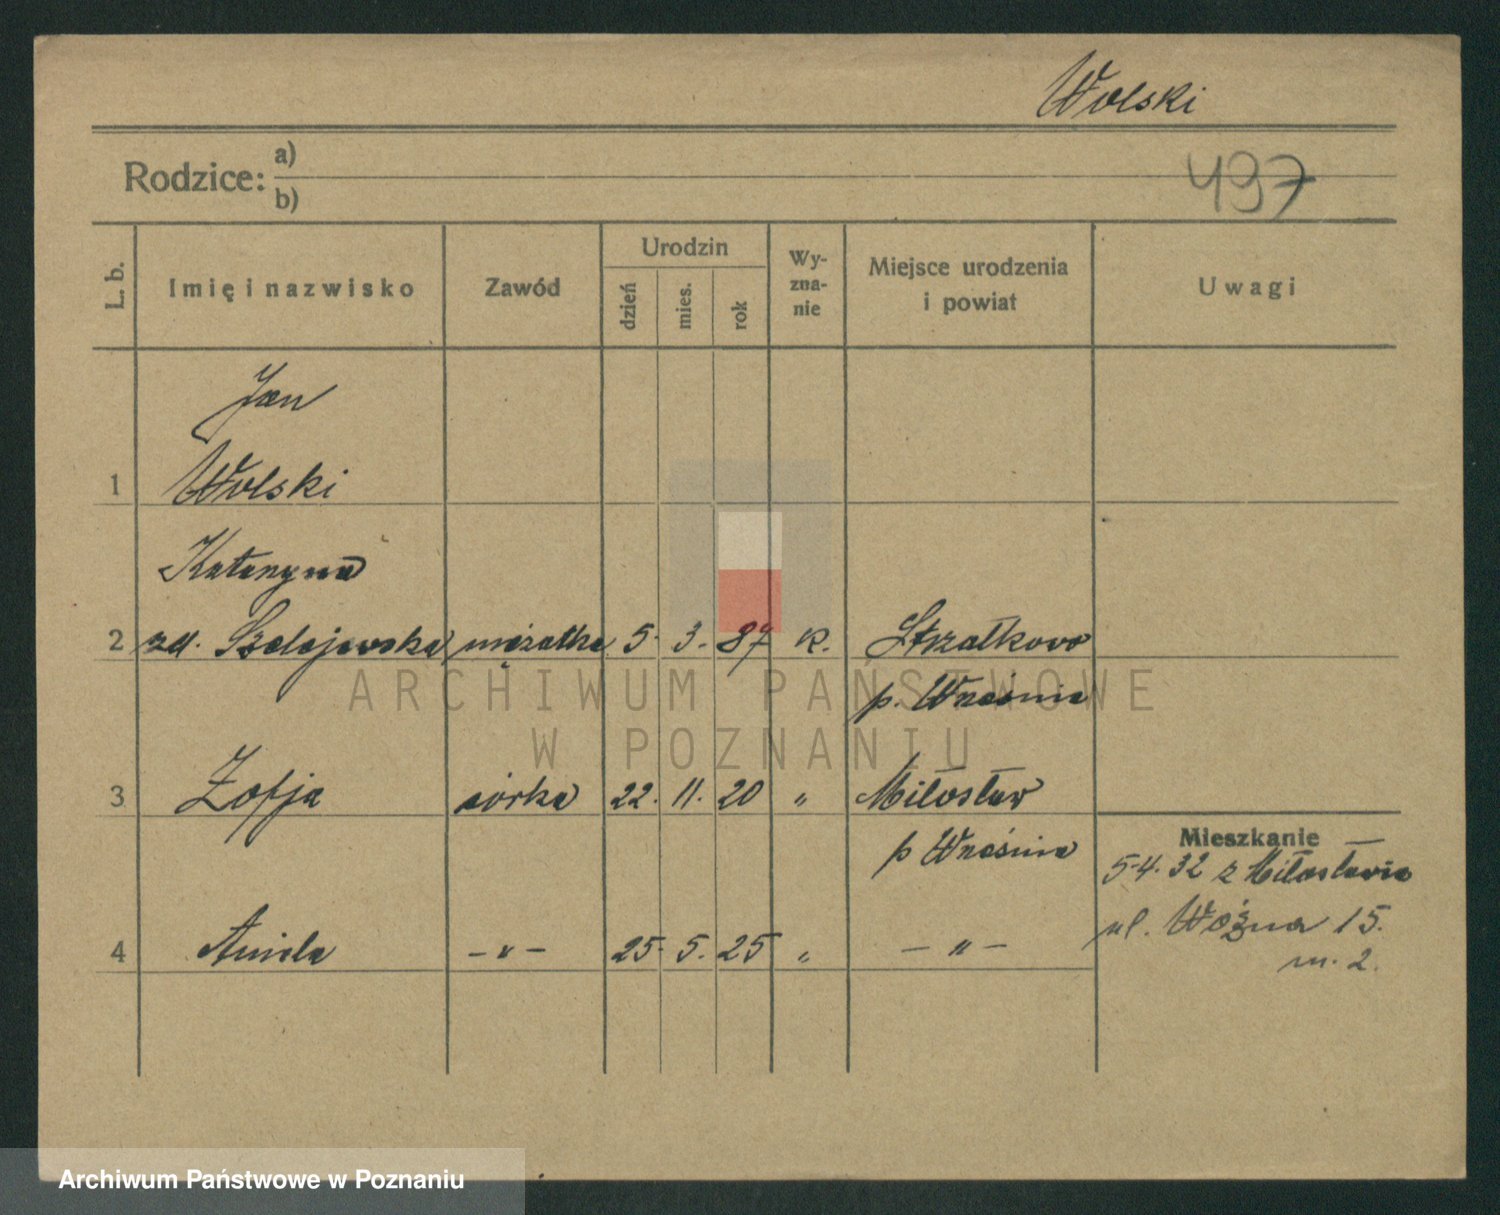 Wolski
Rodzice: a)
b)
497
L. b. Imię i nazwisko Zawód Urodzin dzień mies. rok Wy-zna-nie Miejsce urodzenia i powiat Uwagi
Jan
1 Wolski
Katarzyna
2 zd. Szelejewska mężatka 5. 3. 87 k. Strzałkowo
p. Września
3 Zofja córka 22. 11. 20 „ Miłosław
p Września
Mieszkanie
5.4.32 z Miłosławia
ul. Woźna 15.
m. 2.
4 Aniela -„- 25. 5. 25 „ -„-
ARCHIWUM PAŃSTWOWE
W POZNANIU
Archiwum Państwowe w Poznaniu